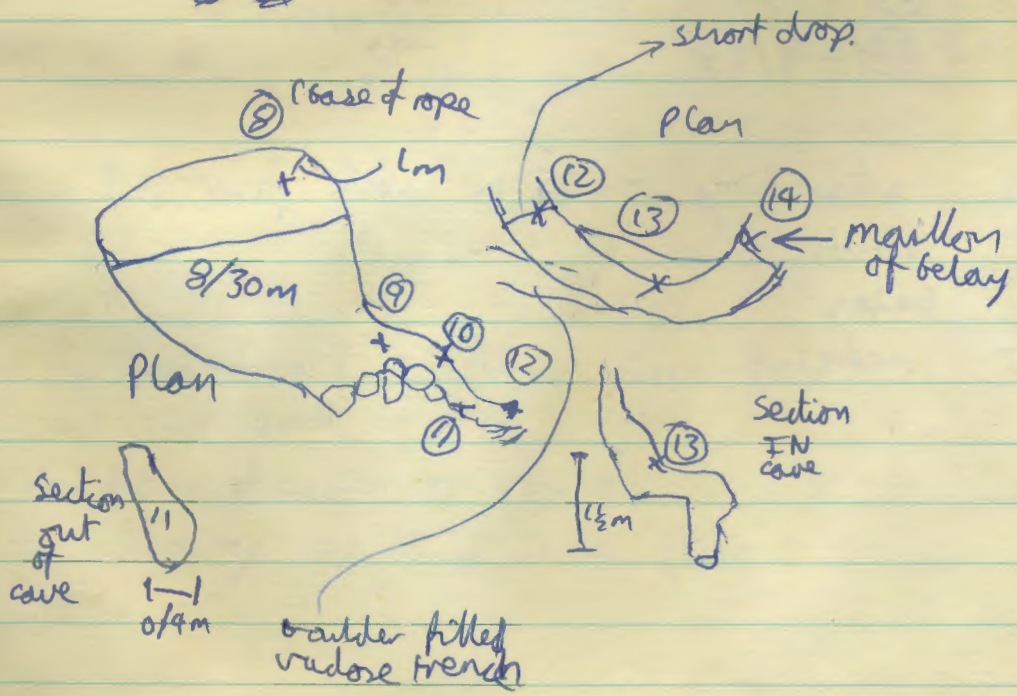 short drop.
(base of rope
8
1m
Plan
12
13
14
maillon
of belay
8/30m
9
10
12
Plan
11
section
IN
cave
13
1½m
section
out
of
cave
11
0/4m
boulder filled
vadose trench